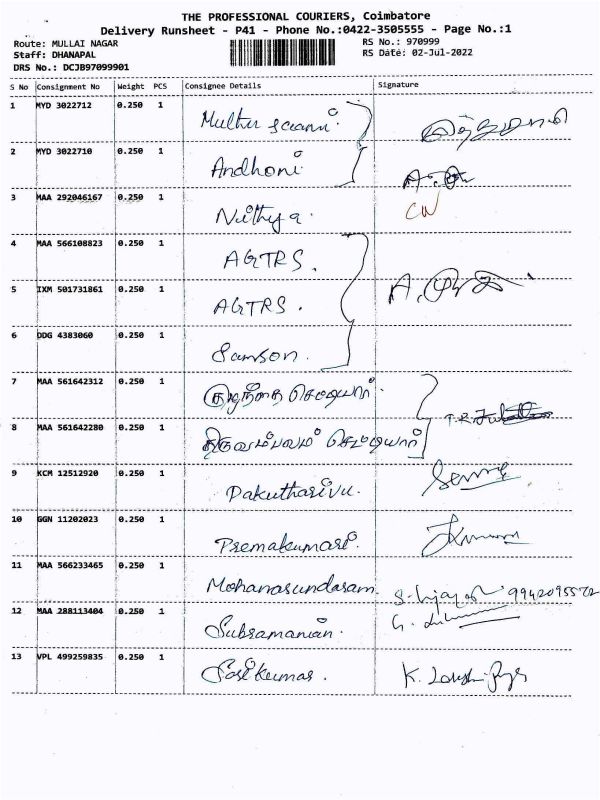 THE PROFESSIONAL COURIERS, Coimbatore
Delivery Runsheet - P41 - Phone No.:0422-3505555 - Page No.:1
Route: MULLAI NAGAR RS No.: 970999
Staff: DHANAPAL RS Date: 02-Jul-2022
DRS No.: DCJB97099901
S No Consignment No Weight PCS Consignee Details Signature
1 MYD 3022712 0.250 1
2 MYD 3022710 0.250 1 Andhoni
3 MAA 292046167 0.250 1 Nithya. CW
4 MAA 566108823 0.250 1 AGTRS.
5 IXM 501731861 0.250 1 AGTRS.
6 DDG 4383060 0.250 1 Samson.
7 MAA 561642312 0.250 1 குழந்தை செட்டியார்.
8 MAA 561642280 0.250 1 திருவம்பலம் செட்டியார்
9 KCM 12512920 0.250 1 Pakutharivu.
10 GGN 11202023 0.250 1 Premakumari.
11 MAA 566233465 0.250 1 Mohanasundaram. 9942095572
12 MAA 288113404 0.250 1 Subramanian.
13 VPL 499259835 0.250 1 Sasikumar.